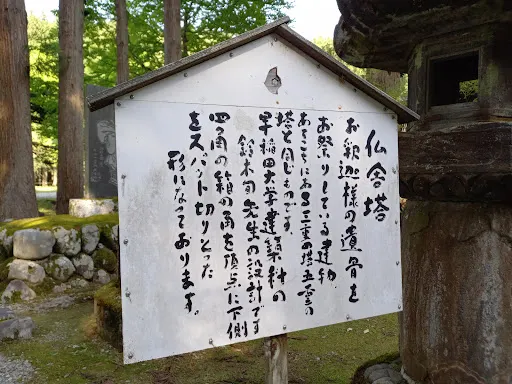 仏舎塔
お釈迦様の遺骨を
お祭りしている建物
あちこちにある三重の塔五重の
塔と同じものです。
早稲田大学建築科の
鈴木恂先生の設計です
四角の箱の角を頂点に下側
をスパット切りとった
形になっております。